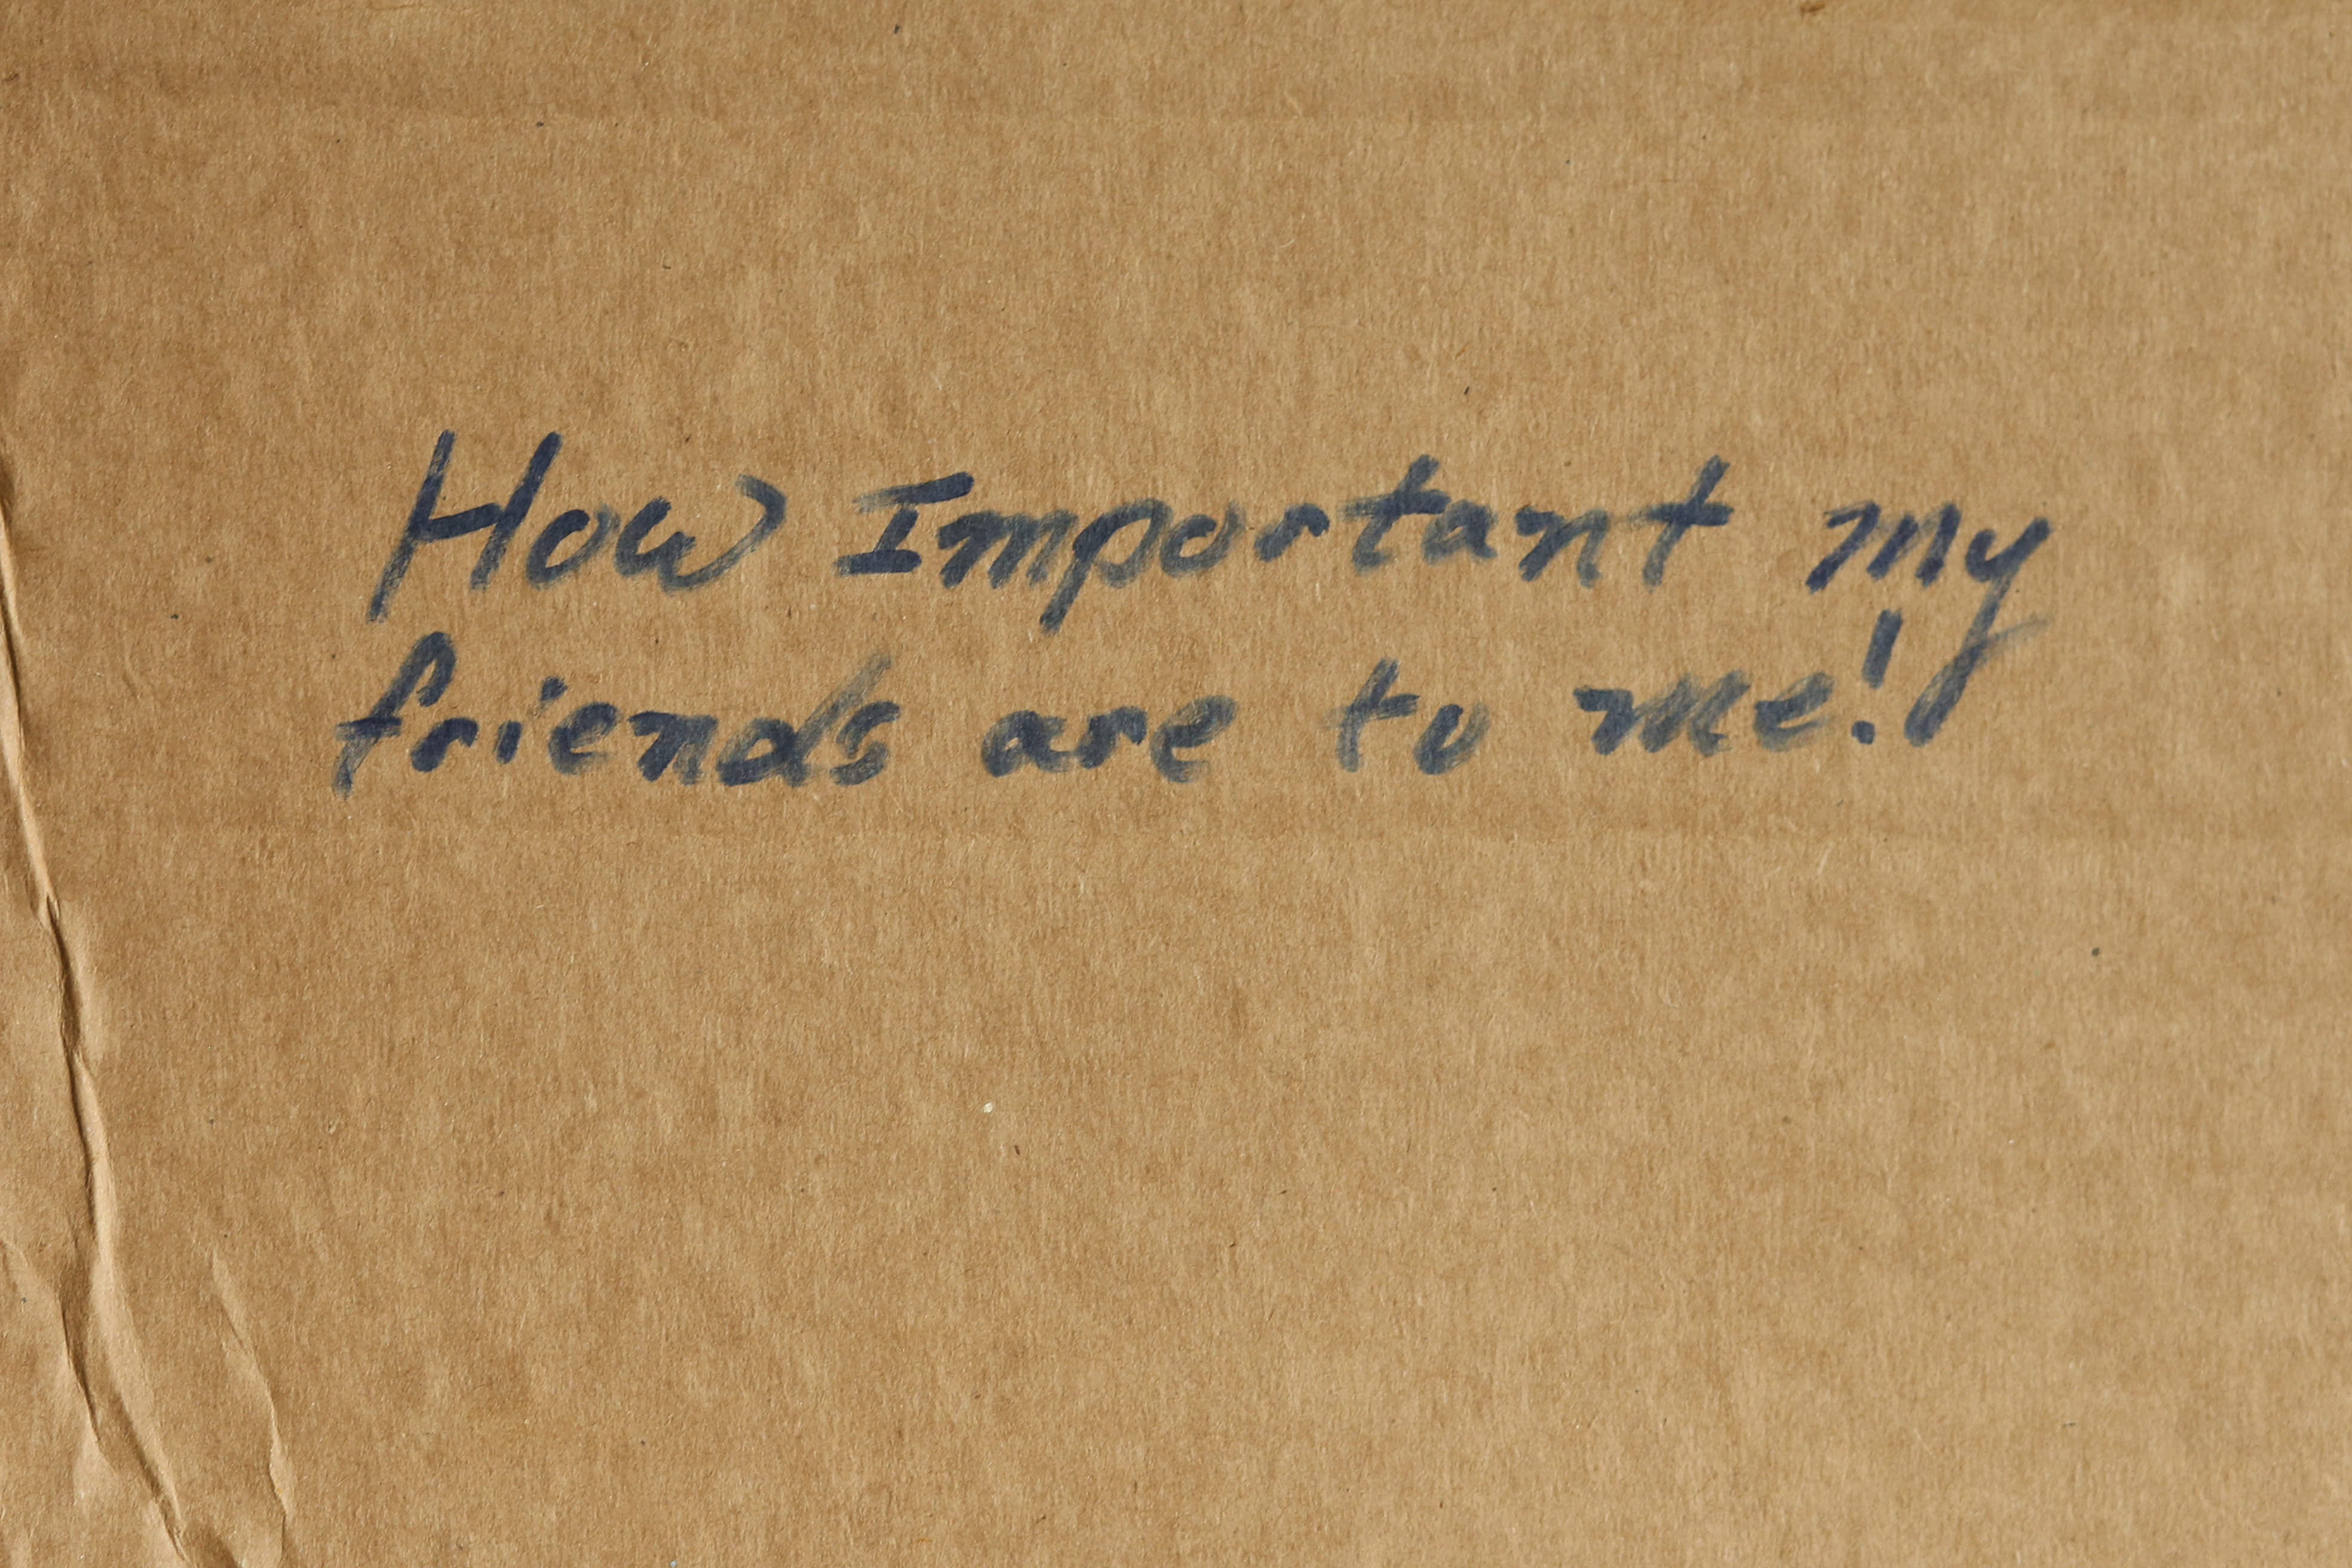 How Important my
friends are to me!